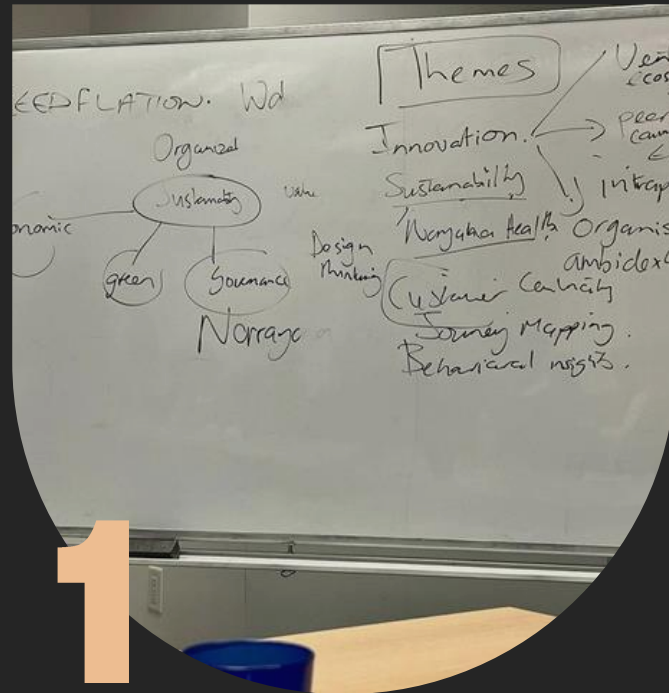 EEDFLATION. Wd
Organized
Sustainability
Value
onomic
green
Governance
Design
Thinking
Themes
Innovation.
Sustainability
Health
Customer Centricity
Journey Mapping.
Behavioural insights.
Ven
ecos
peer
intrap
Organis
ambidex
1